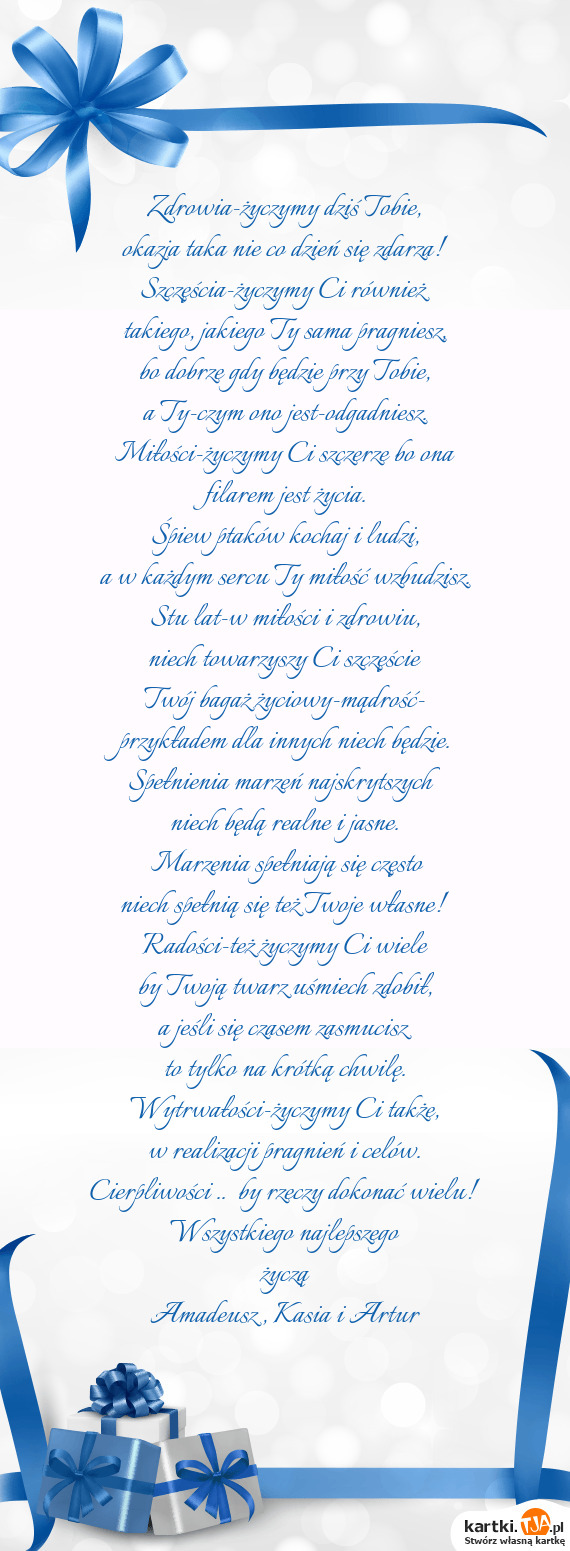 Zdrowia-życzymy dziś Tobie,
okazja taka nie co dzień się zdarza!
Szczęścia-życzymy Ci również,
takiego, jakiego Ty sama pragniesz,
bo dobrze gdy będzie przy Tobie,
a Ty-czym ono jest-odgadniesz.
Miłości-życzymy Ci szczerze bo ona
filarem jest życia.
Śpiew ptaków kochaj i ludzi,
a w każdym sercu Ty miłość wzbudzisz.
Stu lat-w miłości i zdrowiu,
niech towarzyszy Ci szczęście
Twój bagaż życiowy-mądrość-
przykładem dla innych niech będzie.
Spełnienia marzeń najskrytszych
niech będą realne i jasne.
Marzenia spełniają się często
niech spełnią się też Twoje własne!
Radości-też życzymy Ci wiele
by Twoją twarz uśmiech zdobił,
a jeśli się czasem zasmucisz
to tylko na krótką chwilę.
Wytrwałości-życzymy Ci także,
w realizacji pragnień i celów.
Cierpliwości .. by rzeczy dokonać wielu!
Wszystkiego najlepszego
życzą
Amadeusz , Kasia i Artur
kartki.TJA.pl
Stwórz własną kartkę